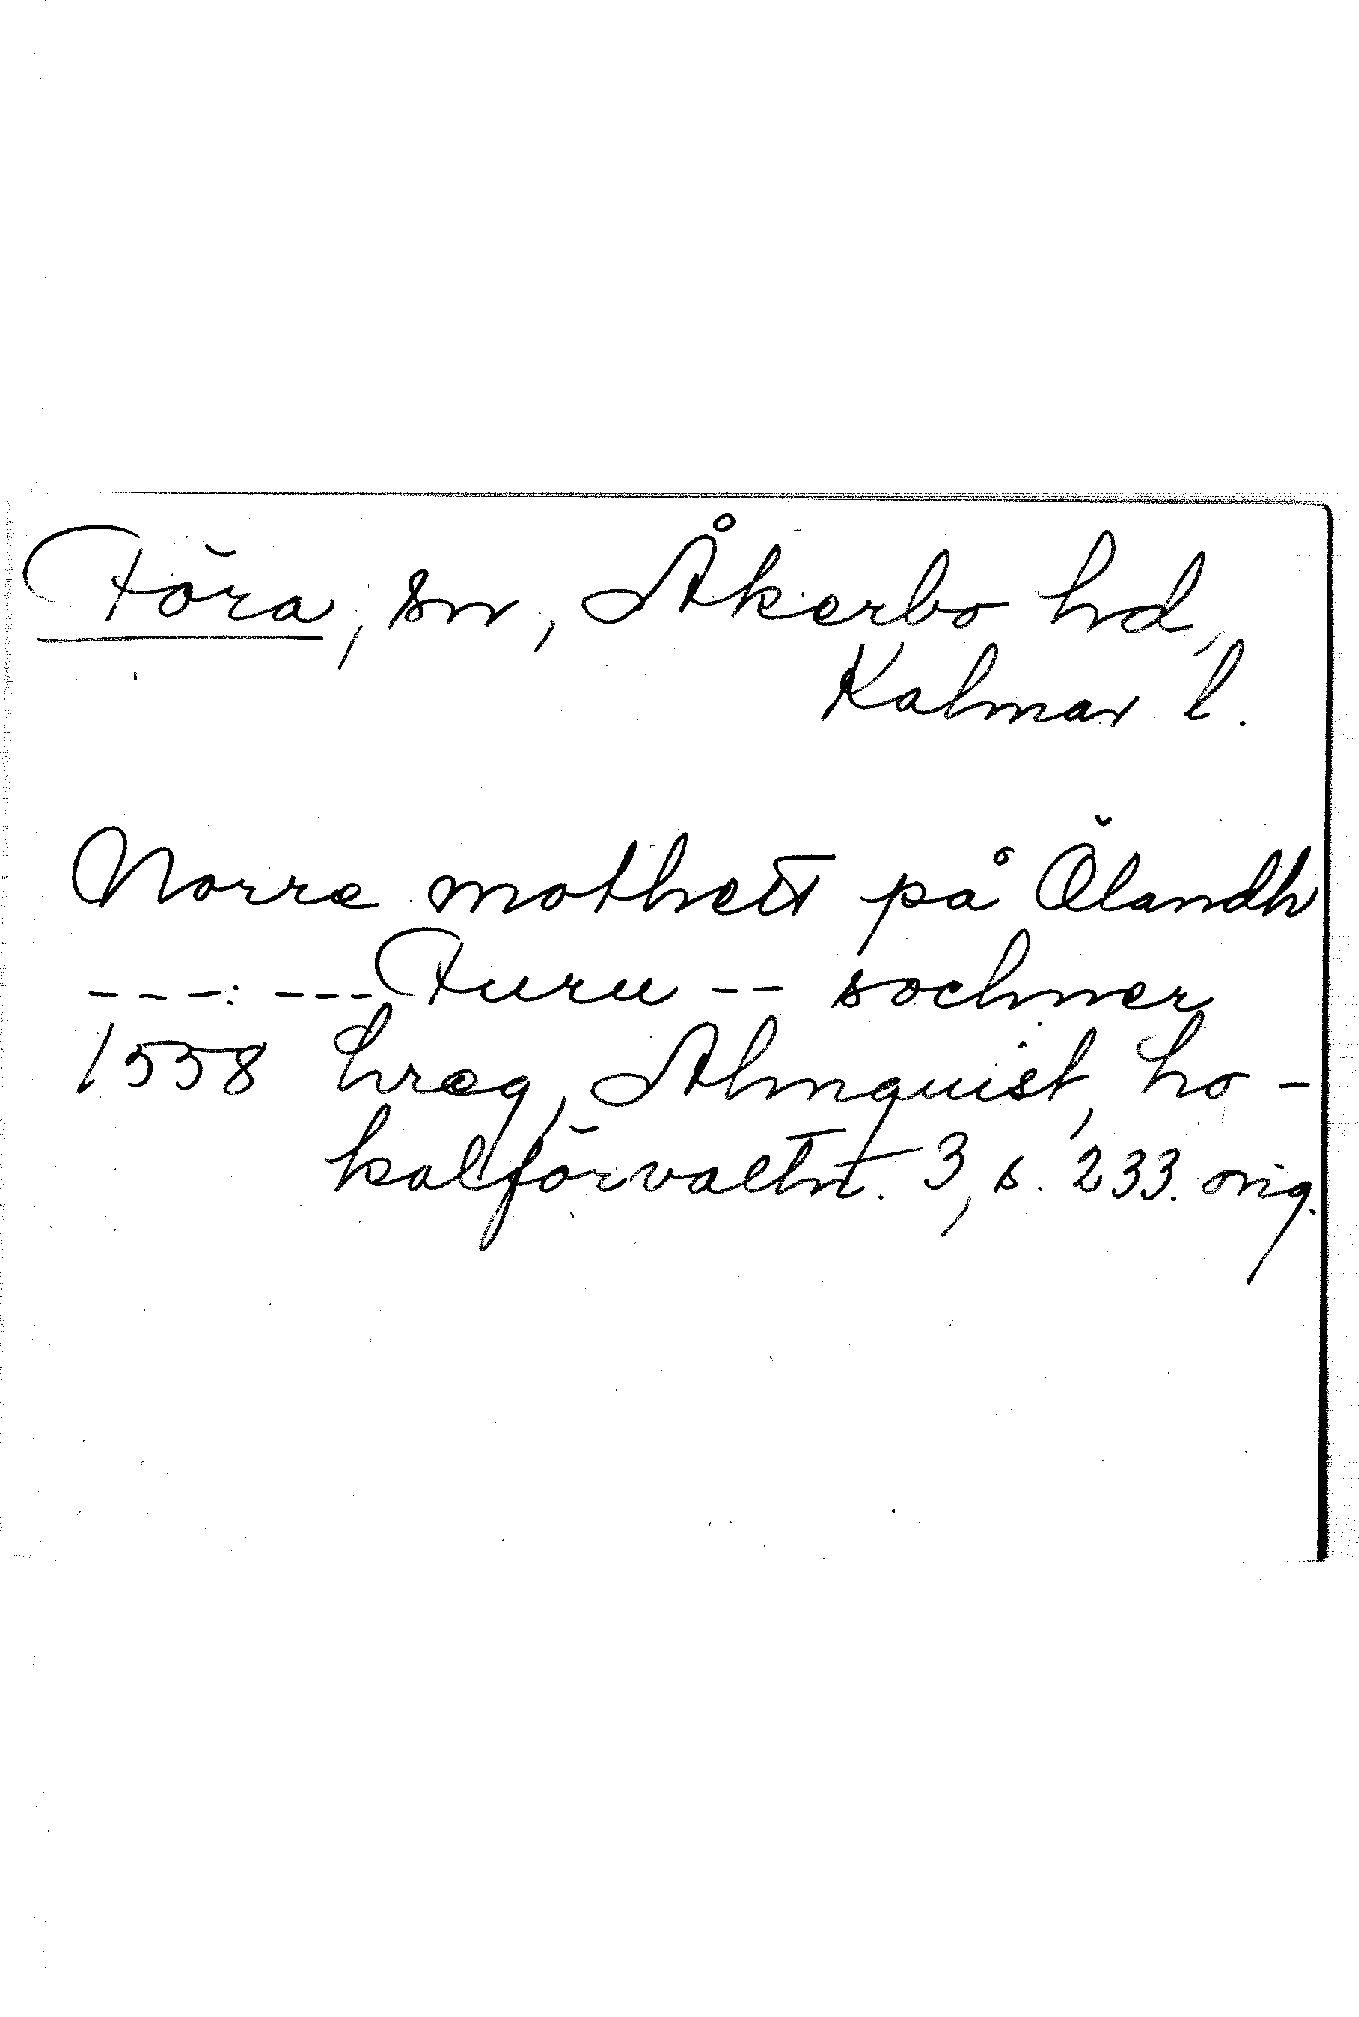 Föra, sn, Åkerbo hd,
Kalmar l.
Norre mothett på Ölandh
---:---Furu -- sochner
1558 hreg, Almquist, Lo-
kalförvaltn. 3, s. 233. orig.